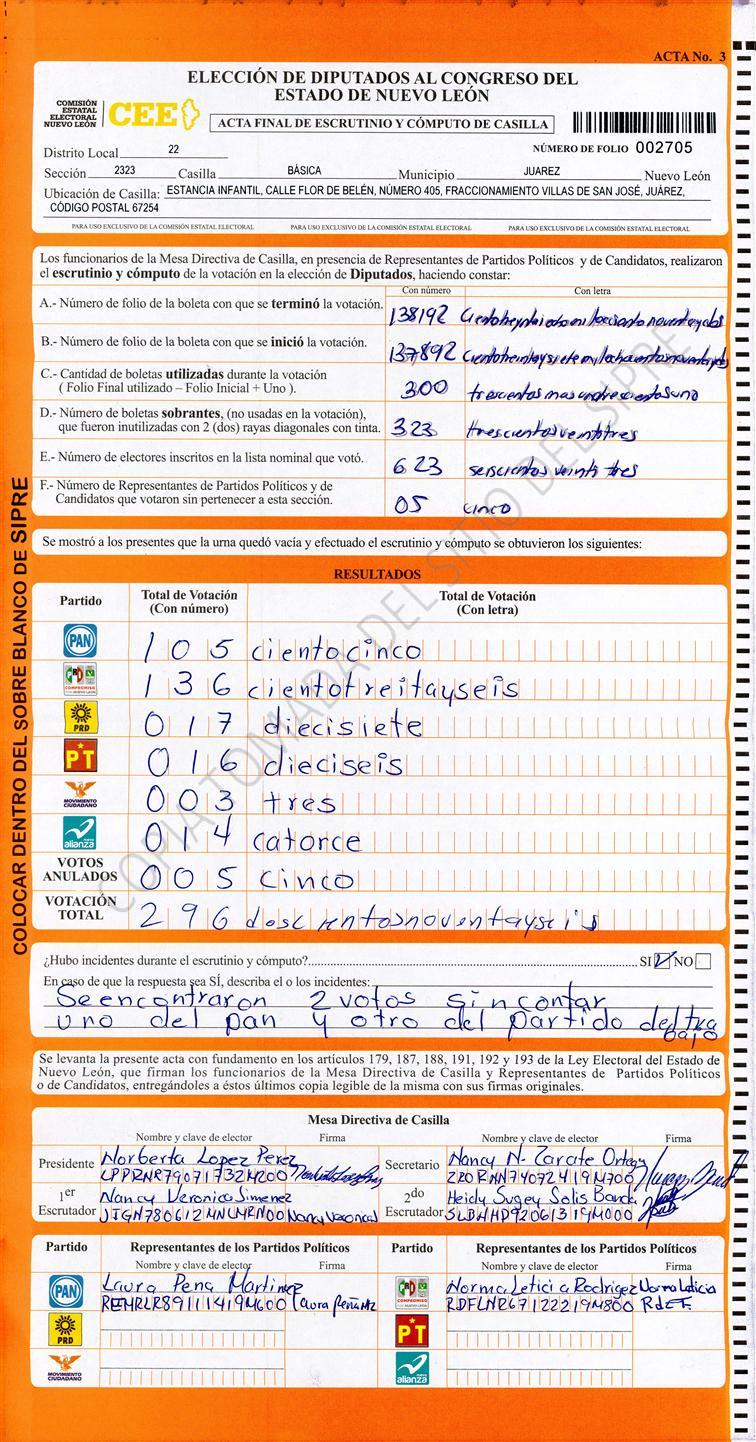 ACTA No. 3
ELECCIÓN DE DIPUTADOS AL CONGRESO DEL
ESTADO DE NUEVO LEÓN
COMISIÓN
ESTATAL
ELECTORAL
NUEVO LEÓN
CEE
ACTA FINAL DE ESCRUTINIO Y CÓMPUTO DE CASILLA
Distrito Local 22
NÚMERO DE FOLIO 002705
Sección 2323 Casilla BÁSICA Municipio JUAREZ Nuevo León
Ubicación de Casilla: ESTANCIA INFANTIL, CALLE FLOR DE BELÉN, NÚMERO 405, FRACCIONAMIENTO VILLAS DE SAN JOSÉ, JUÁREZ,
CÓDIGO POSTAL 67254
PARA USO EXCLUSIVO DE LA COMISIÓN ESTATAL ELECTORAL PARA USO EXCLUSIVO DE LA COMISIÓN ESTATAL ELECTORAL PARA USO EXCLUSIVO DE LA COMISIÓN ESTATAL ELECTORAL
Los funcionarios de la Mesa Directiva de Casilla, en presencia de Representantes de Partidos Políticos y de Candidatos, realizaron
el escrutinio y cómputo de la votación en la elección de Diputados, haciendo constar:
Con número Con letra
A.- Número de folio de la boleta con que se terminó la votación. 138192
B.- Número de folio de la boleta con que se inició la votación. 137892
C.- Cantidad de boletas utilizadas durante la votación
( Folio Final utilizado – Folio Inicial + Uno ). 300 trescientos mas
D.- Número de boletas sobrantes, (no usadas en la votación),
que fueron inutilizadas con 2 (dos) rayas diagonales con tinta. 323 trescientos veintitres
E.- Número de electores inscritos en la lista nominal que votó. 623 seiscientos veinti tres
F.- Número de Representantes de Partidos Políticos y de
Candidatos que votaron sin pertenecer a esta sección. 05 cinco
Se mostró a los presentes que la urna quedó vacía y efectuado el escrutinio y cómputo se obtuvieron los siguientes:
RESULTADOS
Partido Total de Votación Total de Votación
(Con número) (Con letra)
PAN 105 cientocinco
PRI COMPROMISO 136 cientotreitayseis
PRD 017 diecisiete
PT 016 dieciseis
MOVIMIENTO CIUDADANO 003 tres
nueva alianza 014 catorce
VOTOS
ANULADOS 005 cinco
VOTACIÓN
TOTAL 296 doscientosnoventayseis
¿Hubo incidentes durante el escrutinio y cómputo? SI NO
En caso de que la respuesta sea SÍ, describa el o los incidentes:
Se encontraron 2 votos sin contar
uno del pan y otro del partido del trabajo
Se levanta la presente acta con fundamento en los artículos 179, 187, 188, 191, 192 y 193 de la Ley Electoral del Estado de
Nuevo León, que firman los funcionarios de la Mesa Directiva de Casilla y Representantes de Partidos Políticos
o de Candidatos, entregándoles a éstos últimos copia legible de la misma con sus firmas originales.
Mesa Directiva de Casilla
Nombre y clave de elector Firma Nombre y clave de elector Firma
Presidente Norberta Lopez Perez
Secretario Nancy N. Zarate Ortega
1er
Escrutador Nancy Veronica Jimenez
2do
Escrutador Heidy Sugey Solis
Partido Representantes de los Partidos Políticos Partido Representantes de los Partidos Políticos
Nombre y clave de elector Firma Nombre y clave de elector Firma
PAN Laura Pena Martinez
PRI Norma Leticia Rodrigez Norma Leticia
PRD PT
MOVIMIENTO CIUDADANO nueva alianza
COLOCAR DENTRO DEL SOBRE BLANCO DE SIPRE
COPIA TOMADA DEL SITIO DEL SIPRE